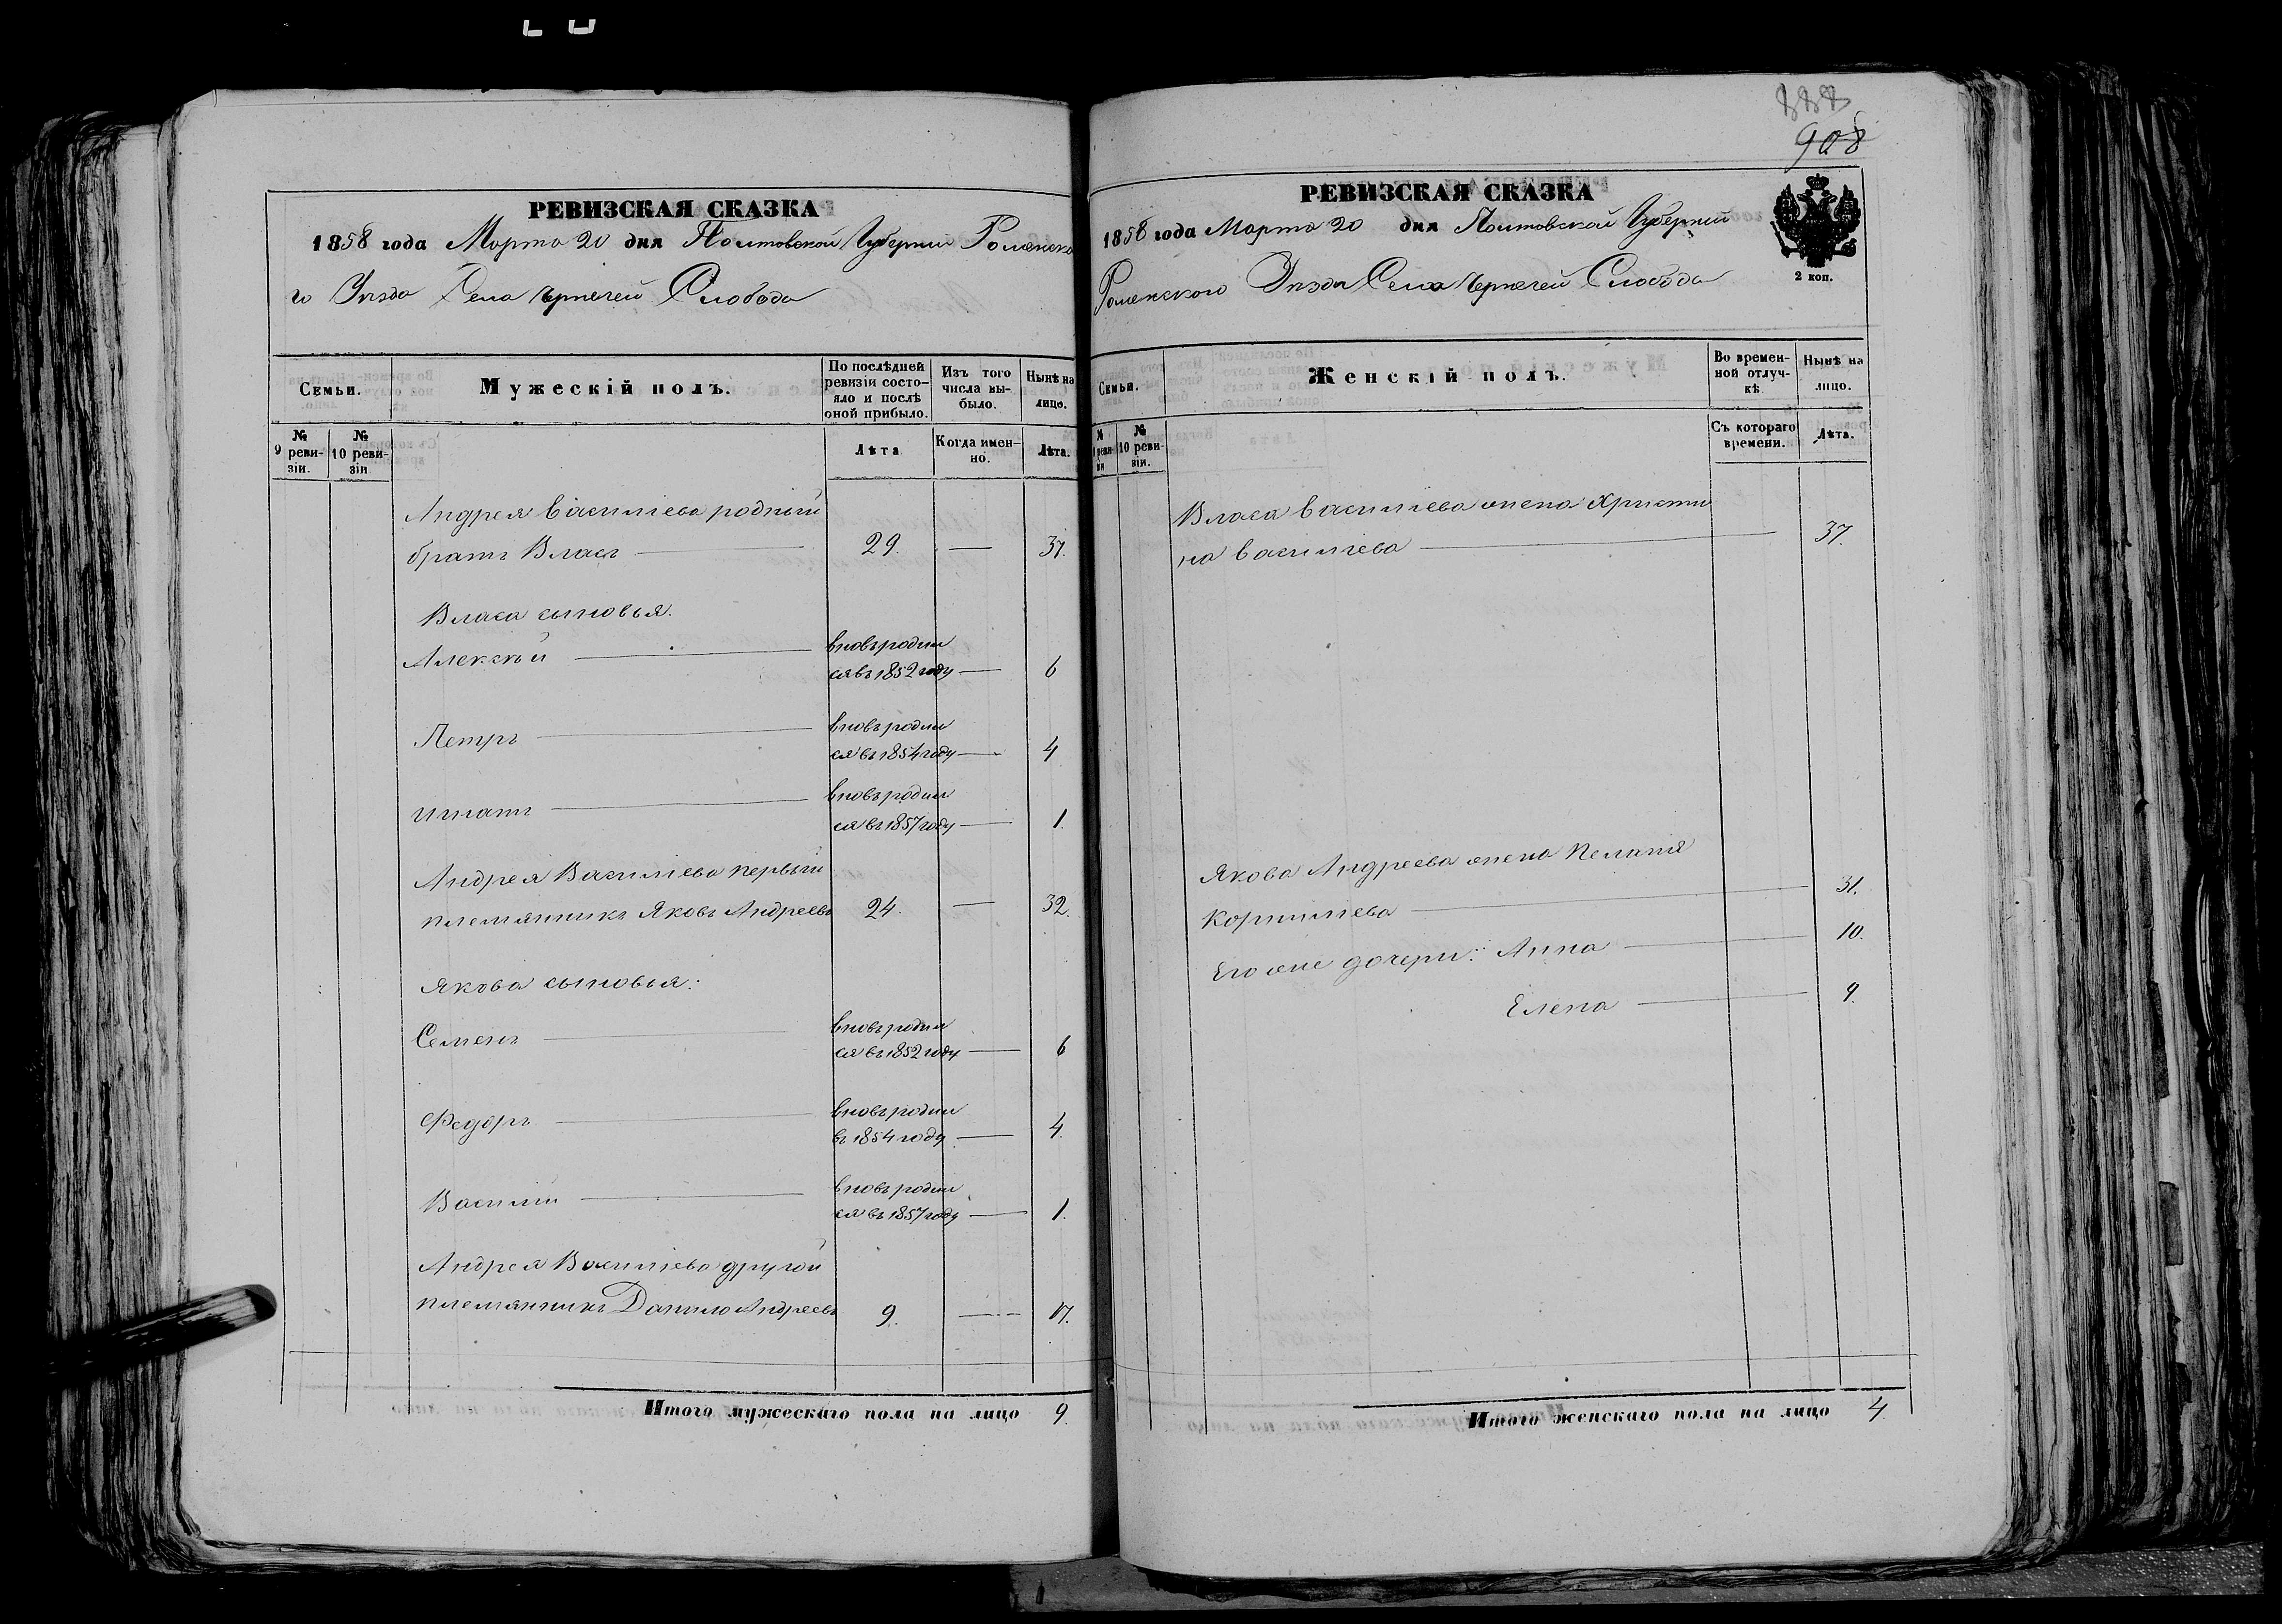 РЕВИЗСКАЯ СКАЗКА
1858 года Марта 20 дня Полтовской Губернии Роменско
го Уѣзда Села Чернечей Слободы
Семьи.
Мужескій полъ.
По послѣдней ревизіи состо-
яло и послѣ оной прибыло.
Изъ того числа вы-
было.
Нынѣ на лицо.
№ 9 реви-
зіи.
№ 10 реви-
зіи
Лѣта
Когда имен-
но.
Лѣта.
Андрея Василіева родный
братъ Власъ 29. — 37.
Власа сыновья.
Алексѣй
вновь родил
ся въ 1852 году — 6
Петръ
вновь родил
ся въ 1854 году — 4
Игнатъ
вновь родил
ся въ 1857 году — 1.
Андрея Василіева первый
племянникъ Яковъ Андреевъ 24. — 32.
Якова сыновья:
Семенъ
вновь родил
ся въ 1852 году — 6
Федоръ
вновь родил
въ 1854 году — 4.
Василій
вновь родил
ся въ 1857 году — 1.
Андрея Василіева другой
племянникъ Данило Андреевъ 9. — 17.
Итого мужескаго пола на лицо 9.
908
РЕВИЗСКАЯ СКАЗКА
1858 года Марта 20 дня Полтовской Губерніи
Роменского Уѣзда Села Чернечей Слободы
2 коп.
Семьи.
Женскій полъ.
Во времен-
ной отлуч-
кѣ.
Нынѣ на лицо.
№ 10 реви-
зіи.
Съ котораго времени.
Лѣта.
Власа Василіева жена Христи
на Василіева 37.
Якова Андреева жена Пелагія
Корниліева 31.
Его же дочери: Анна 10.
Елена 9.
Итого женскаго пола на лицо 4.